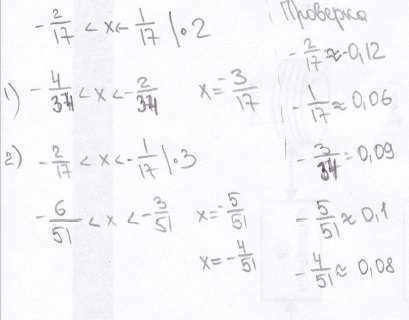 - 2/17 < x < - 1/17 | · 2
1) - 4/34 < x < - 2/34 x = - 3/17
2) - 2/17 < x < - 1/17 | · 3
- 6/51 < x < - 3/51 x = - 5/51
x = - 4/51
Проверка
- 2/17 ≈ -0,12
- 1/17 ≈ 0,06
- 3/34 = 0,09
- 5/51 ≈ 0,1
- 4/51 ≈ 0,08